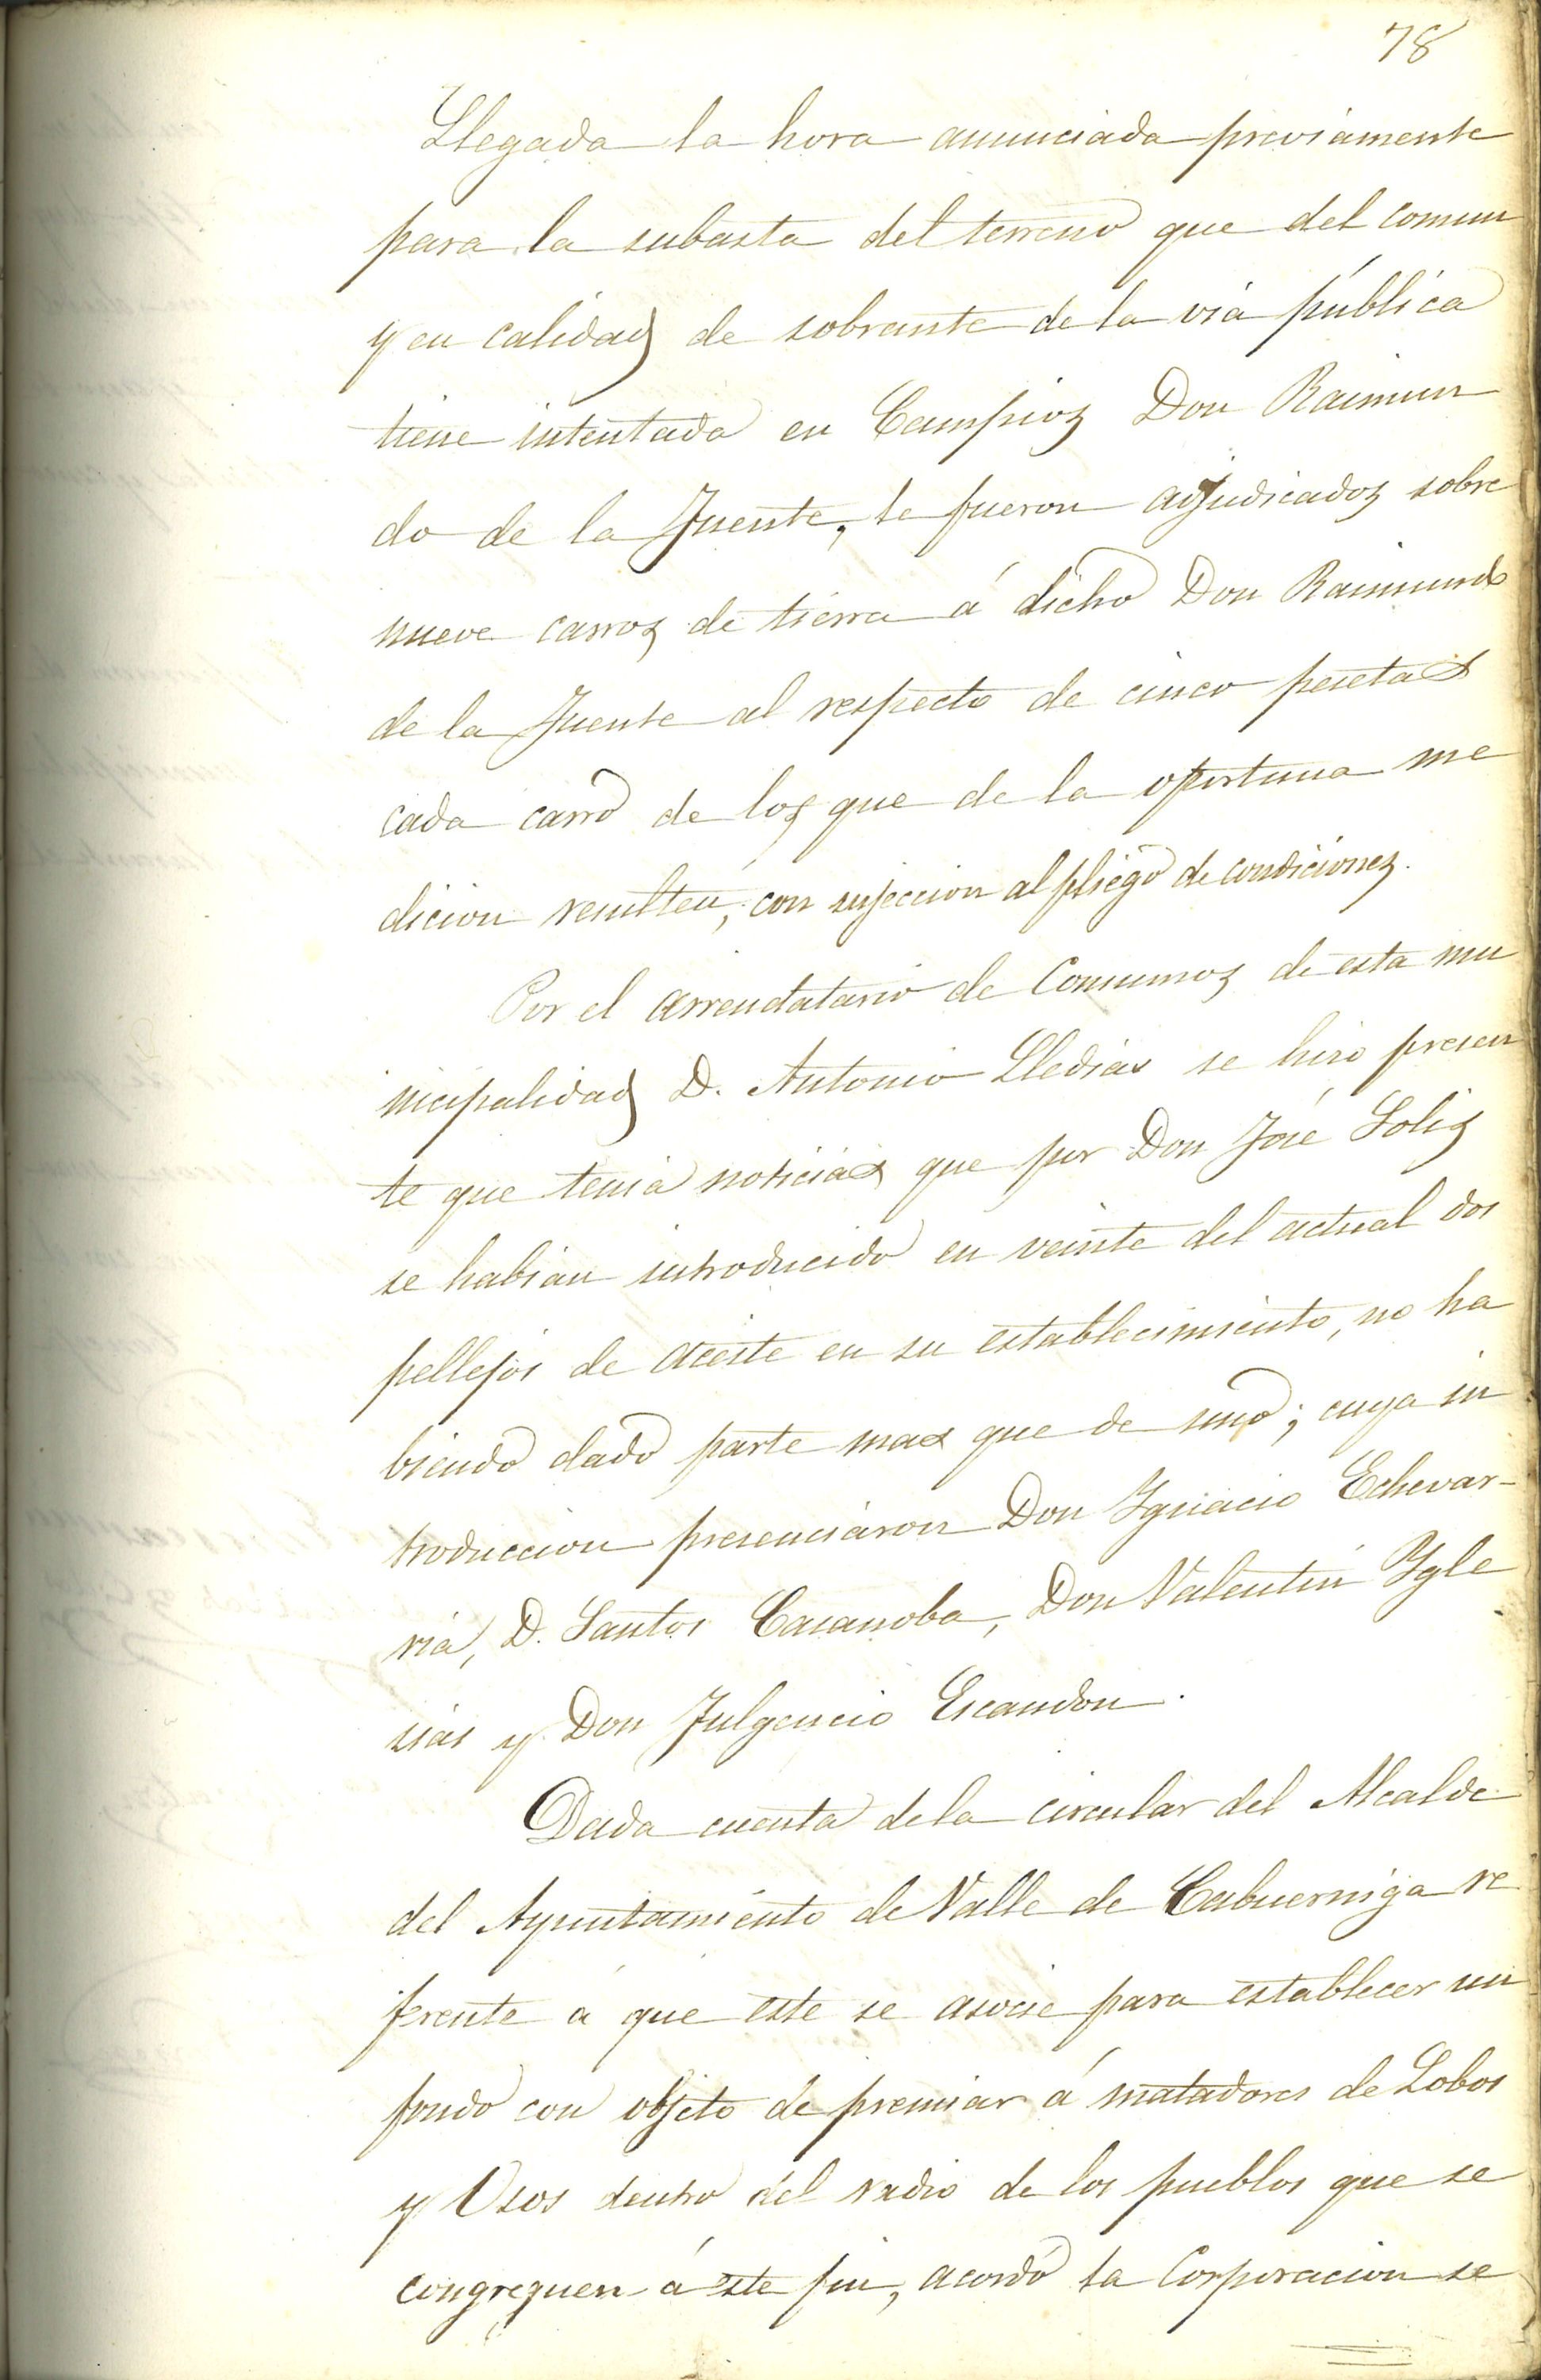 78
Llegada la hora anunciada previamente
para la subasta del terreno que del comun
y en calidad de sobrante de la via pública
tiene intentada en Campios Don Raimun
do de la Fuente, le fueron adjudicados sobre
nueve carros de tierra á dicho Don Raimundo
de la Fuente al respecto de cinco pesetas
cada carro de los que de la oportuna me
dicion resulten, con sujeccion al pliego de condiciones.
Por el arrendatario de Consumos de esta mu
nicipalidad D. Antonio Lledias se hizo presen
te que tenia noticias que por Don José Solis
se habian introducido en veinte del actual dos
pellejos de aceite en su establecimiento, no ha
biendo dado parte mas que de uno; cuya in
troduccion presenciaron Don Ygnacio Echevar-
ria, D. Santos Casanoba, Don Valentin Ygle
sias y Don Fulgencio Escandon.
Dada cuenta de la circular del Alcalde
del Ayuntamiento de Valle de Cabuerniga re
ferente á que este se asocie para establecer un
fondo con objeto de premiar á matadores de Lobos
y Osos dentro del radio de los pueblos que se
congreguen á este fin, acordó la Corporacion se